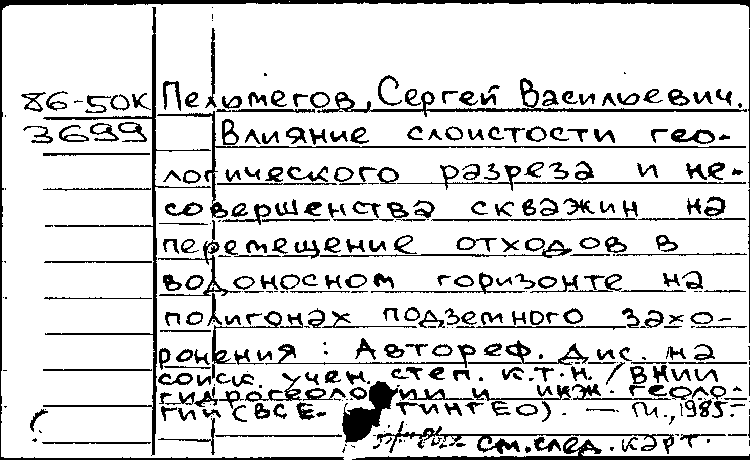 86-50К Пельмегов, Сергей Васильевич.
3699 Влияние слоистости гео-
логического разреза и не-
совершенства скважин на
перемещение отходов в
водоносном горизонте на
полигонах подземного захо-
ронения : Автореф. дис. на
соиск. учен. степ. к.т.н. / ВНИИ
гидрогеологии и инж. геоло-
гии (ВСЕ- ГИНГЕО). — М., 1985.
см.след.карт.